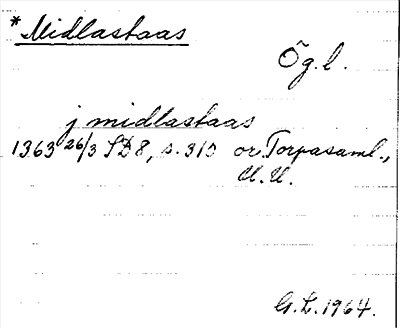 *Midlastaas
Ög. l.
j midlastaas
1363 26/3 SD8, s. 315 or. Torpasaml.,
U. U.
G. L. 1964.